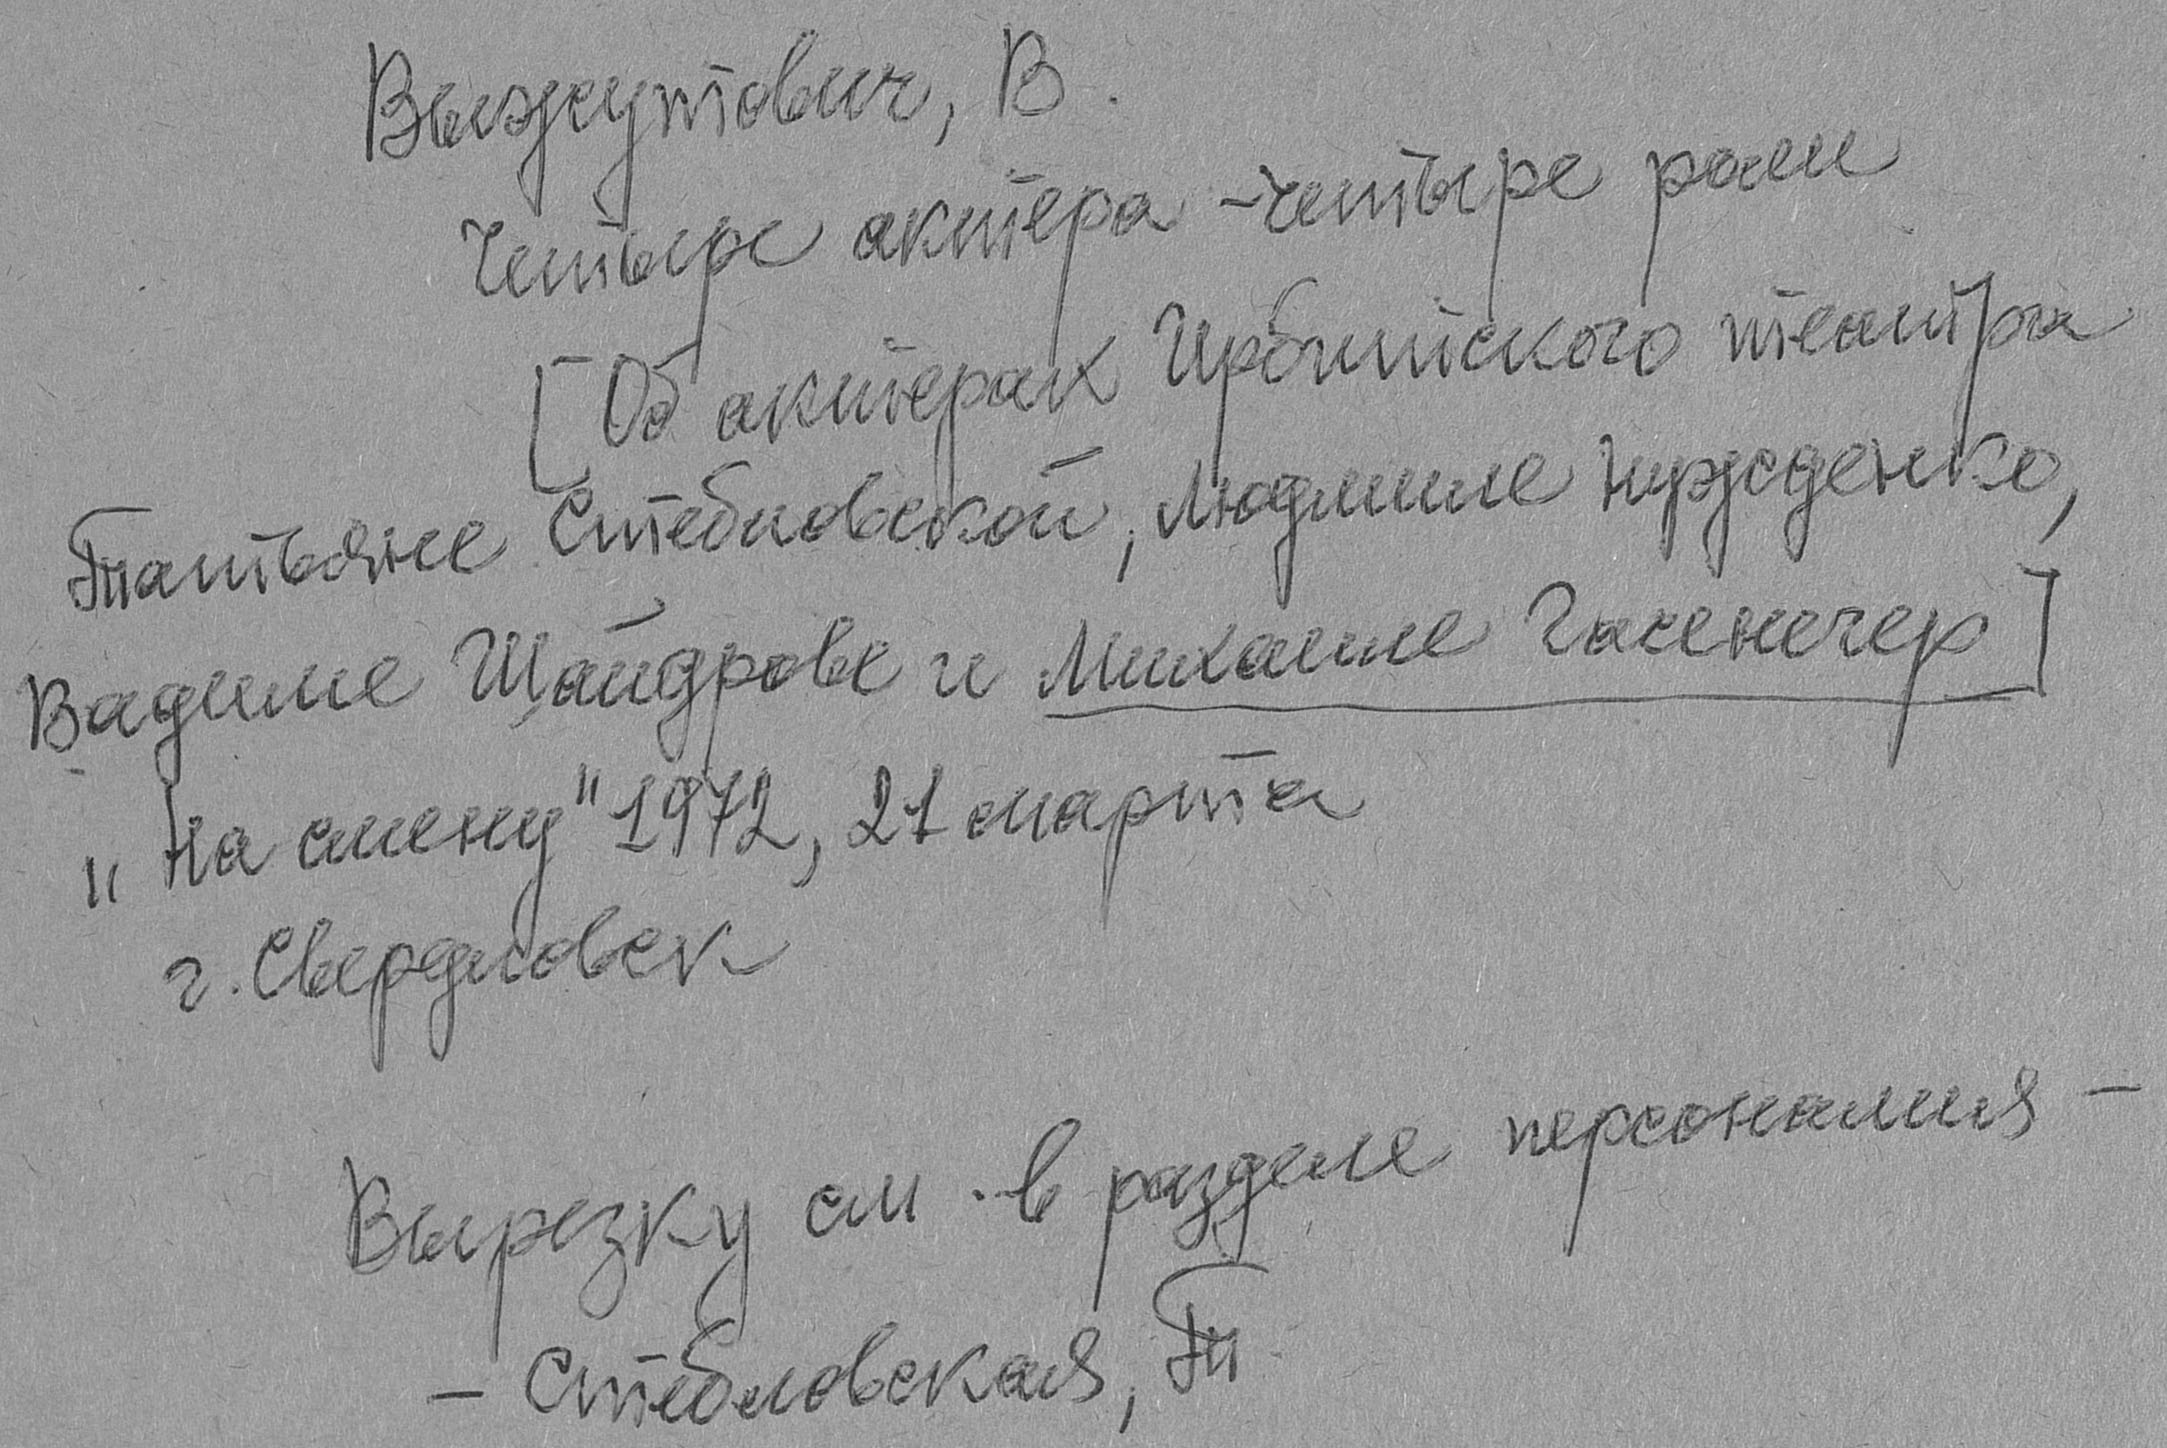 Выжутович, В.
Четыре актера - четыре роли
[Об актерах Ирбитского театра
Татьяне Стебловской, Людмиле Нужденко,
Вадиме Шайдрове и Михаиле Гасенегер]
"На смену" 1972, 21 марта
г. Свердловск
Вырезку см. в разделе персоналия -
- Стебловская, Т.